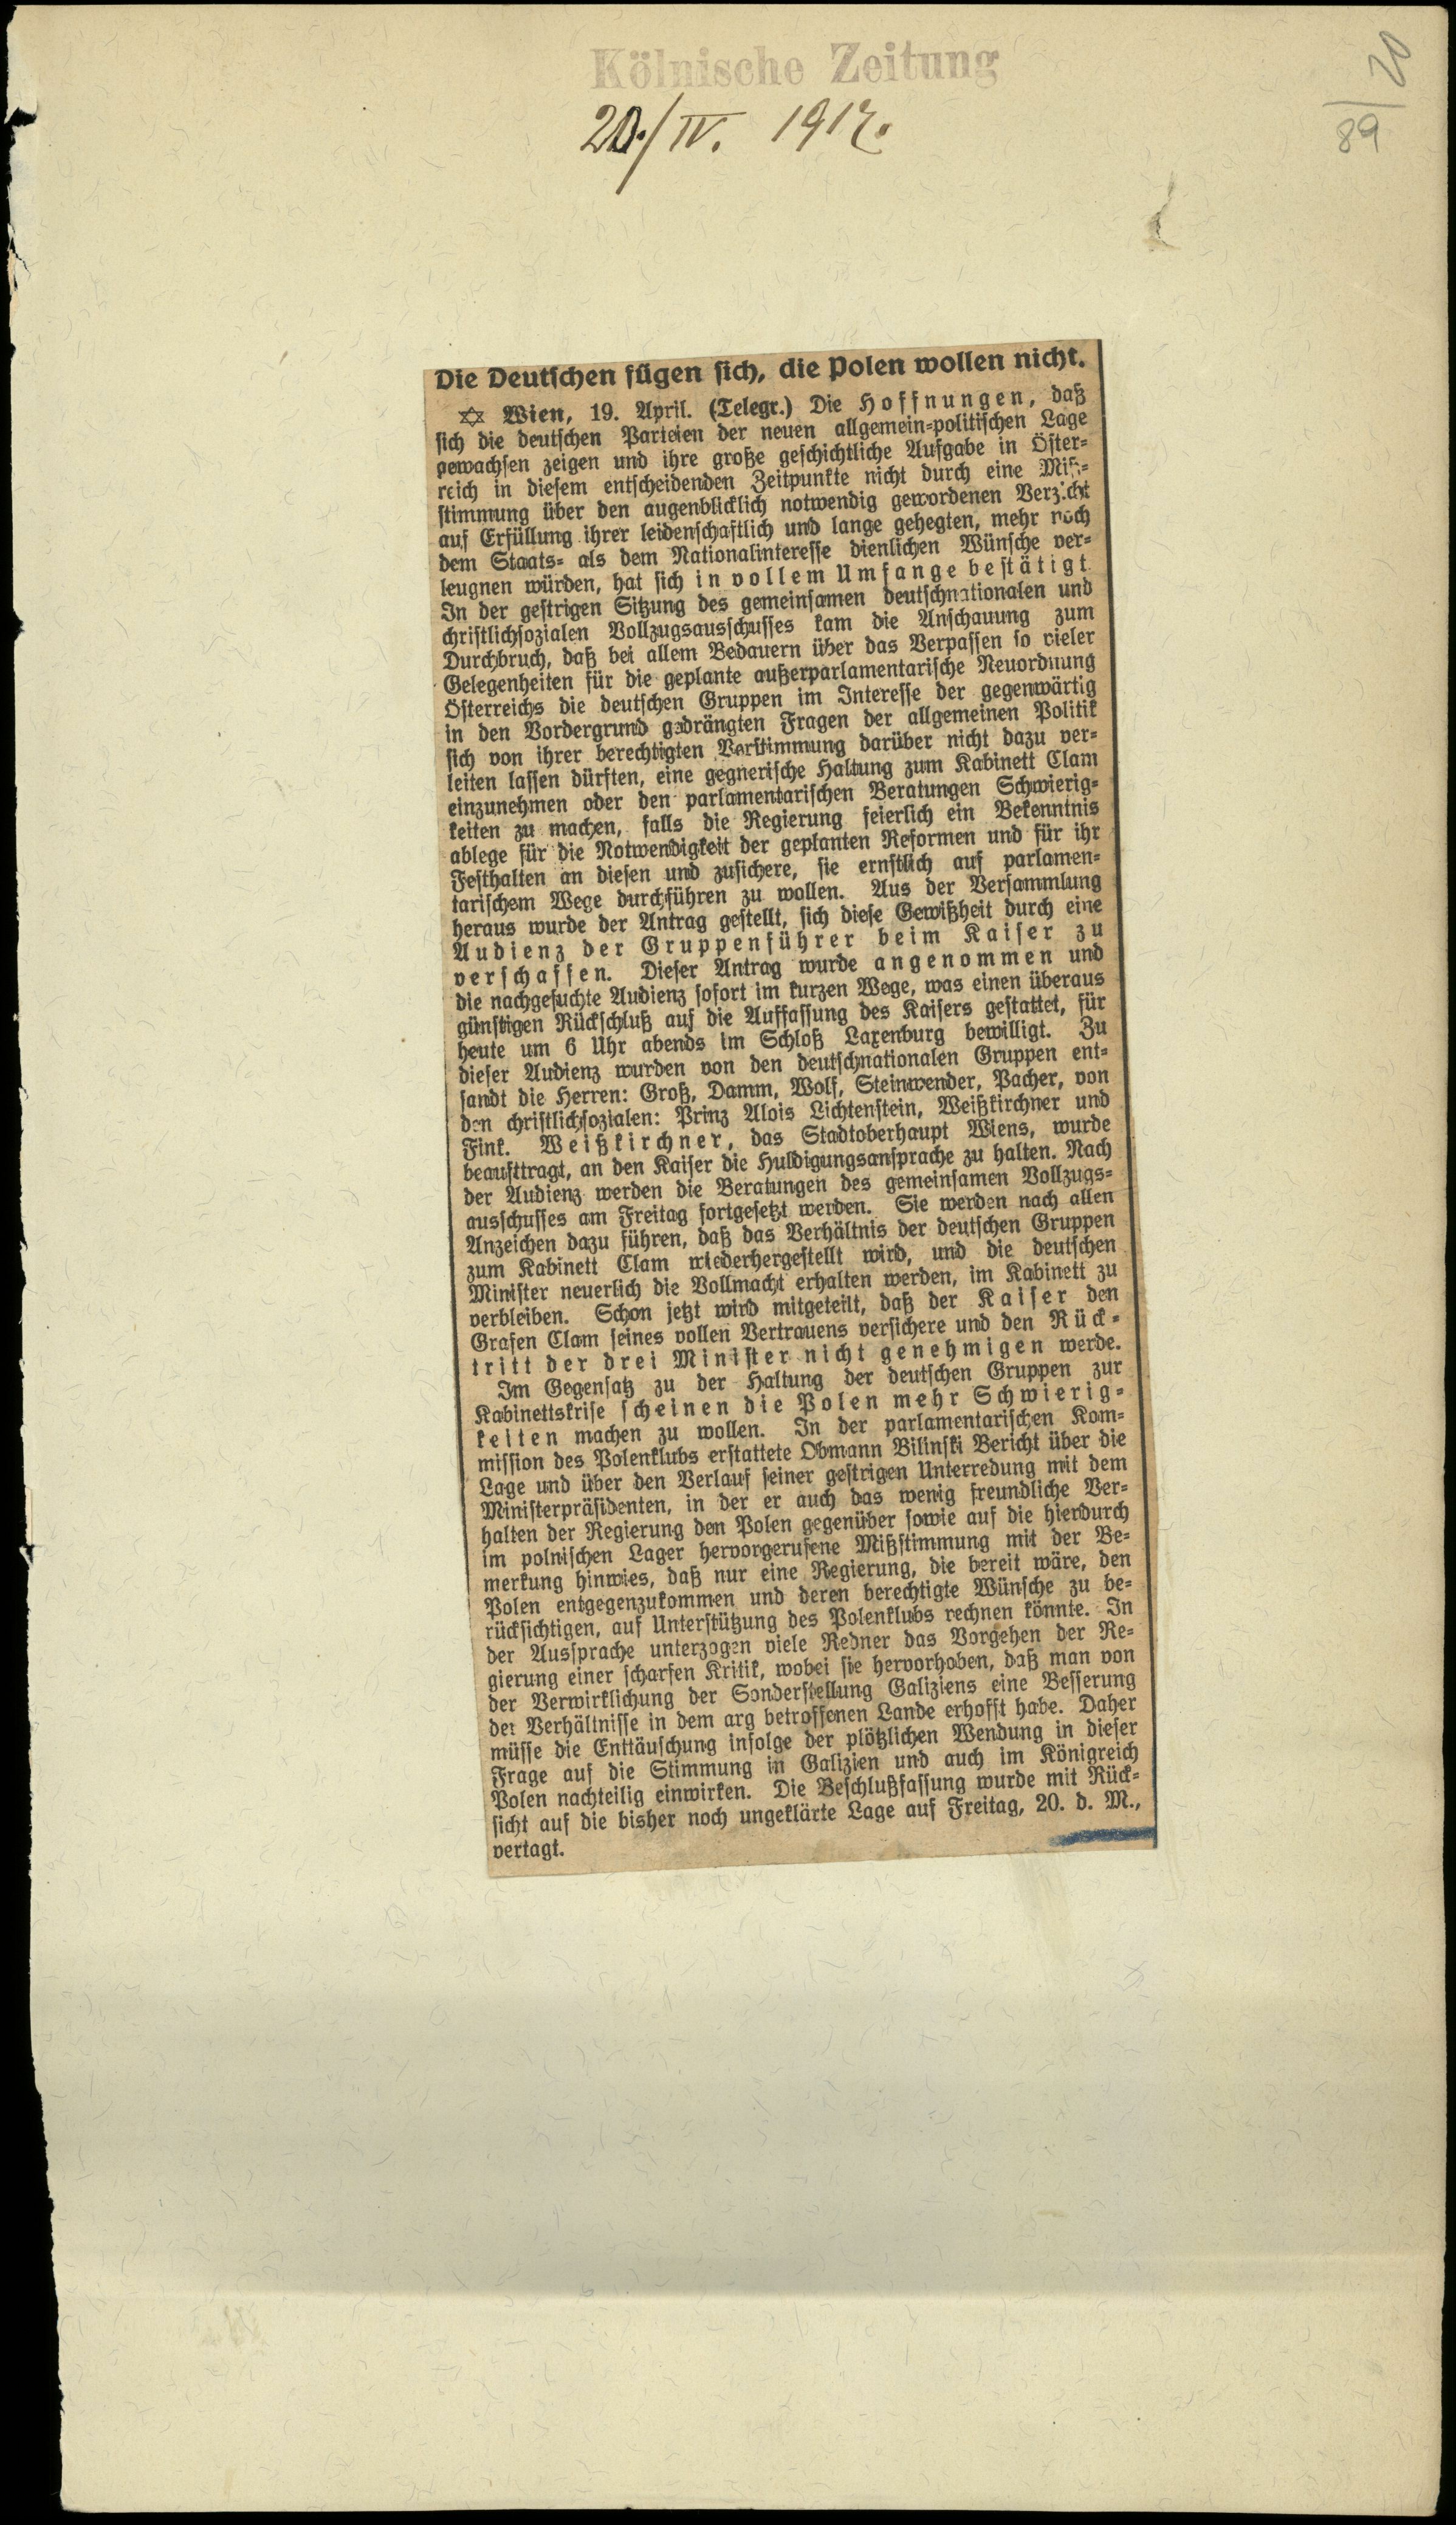 Kölnische Zeitung
20./IV. 1917.
20
89
Die Deutschen fügen sich, die Polen wollen nicht.
✡ Wien, 19. April. (Telegr.) Die Hoffnungen, daß
sich die deutschen Parteien der neuen allgemein-politischen Lage
gewachsen zeigen und ihre große geschichtliche Aufgabe in Öster-
reich in diesem entscheidenden Zeitpunkte nicht durch eine Miß-
stimmung über den augenblicklich notwendig gewordenen Verzicht
auf Erfüllung ihrer leidenschaftlich und lange gehegten, mehr noch
dem Staats- als dem Nationalinteresse dienlichen Wünsche ver-
leugnen würden, hat sich in vollem Umfange bestätigt.
In der gestrigen Sitzung des gemeinsamen deutschnationalen und
christlichsozialen Vollzugsausschusses kam die Anschauung zum
Durchbruch, daß bei allem Bedauern über das Verpassen so vieler
Gelegenheiten für die geplante außerparlamentarische Neuordnung
Österreichs die deutschen Gruppen im Interesse der gegenwärtig
in den Vordergrund gedrängten Fragen der allgemeinen Politik
sich von ihrer berechtigten Verstimmung darüber nicht dazu ver-
leiten lassen dürften, eine gegnerische Haltung zum Kabinett Clam
einzunehmen oder den parlamentarischen Beratungen Schwierig-
keiten zu machen, falls die Regierung feierlich ein Bekenntnis
ablege für die Notwendigkeit der geplanten Reformen und für ihr
Festhalten an diesen und zusichere, sie ernstlich auf parlamen-
tarischem Wege durchführen zu wollen. Aus der Versammlung
heraus wurde der Antrag gestellt, sich diese Gewißheit durch eine
Audienz der Gruppenführer beim Kaiser zu
verschaffen. Dieser Antrag wurde angenommen und
die nachgesuchte Audienz sofort im kurzen Wege, was einen überaus
günstigen Rückschluß auf die Auffassung des Kaisers gestattet, für
heute um 6 Uhr abends im Schloß Laxenburg bewilligt. Zu
dieser Audienz wurden von den deutschnationalen Gruppen ent-
sandt die Herren: Groß, Damm, Wolf, Steinwender, Pacher, von
den christlichsozialen: Prinz Alois Lichtenstein, Weißkirchner und
Fink. Weißkirchner, das Stadtoberhaupt Wiens, wurde
beaufttragt, an den Kaiser die Huldigungsansprache zu halten. Nach
der Audienz werden die Beratungen des gemeinsamen Vollzugs-
ausschusses am Freitag fortgesetzt werden. Sie werden nach allen
Anzeichen dazu führen, daß das Verhältnis der deutschen Gruppen
zum Kabinett Clam wiederhergestellt wird, und die deutschen
Minister neuerlich die Vollmacht erhalten werden, im Kabinett zu
verbleiben. Schon jetzt wird mitgeteilt, daß der Kaiser den
Grafen Clam seines vollen Vertrauens versichere und den Rück-
tritt der drei Minister nicht genehmigen werde.
Im Gegensatz zu der Haltung der deutschen Gruppen zur
Kabinettskrise scheinen die Polen mehr Schwierig-
keiten machen zu wollen. In der parlamentarischen Kom-
mission des Polenklubs erstattete Obmann Bilinski Bericht über die
Lage und über den Verlauf seiner gestrigen Unterredung mit dem
Ministerpräsidenten, in der er auch das wenig freundliche Ver-
halten der Regierung den Polen gegenüber sowie auf die hierdurch
im polnischen Lager hervorgerufene Mißstimmung mit der Be-
merkung hinwies, daß nur eine Regierung, die bereit wäre, den
Polen entgegenzukommen und deren berechtigte Wünsche zu be-
rücksichtigen, auf Unterstützung des Polenklubs rechnen könnte. In
der Aussprache unterzogen viele Redner das Vorgehen der Re-
gierung einer scharfen Kritik, wobei sie hervorhoben, daß man von
der Verwirklichung der Sonderstellung Galiziens eine Besserung
der Verhältnisse in dem arg betroffenen Lande erhofft habe. Daher
müsse die Enttäuschung infolge der plötzlichen Wendung in dieser
Frage auf die Stimmung in Galizien und auch im Königreich
Polen nachteilig einwirken. Die Beschlußfassung wurde mit Rück-
sicht auf die bisher noch ungeklärte Lage auf Freitag, 20. d. M.,
vertagt.